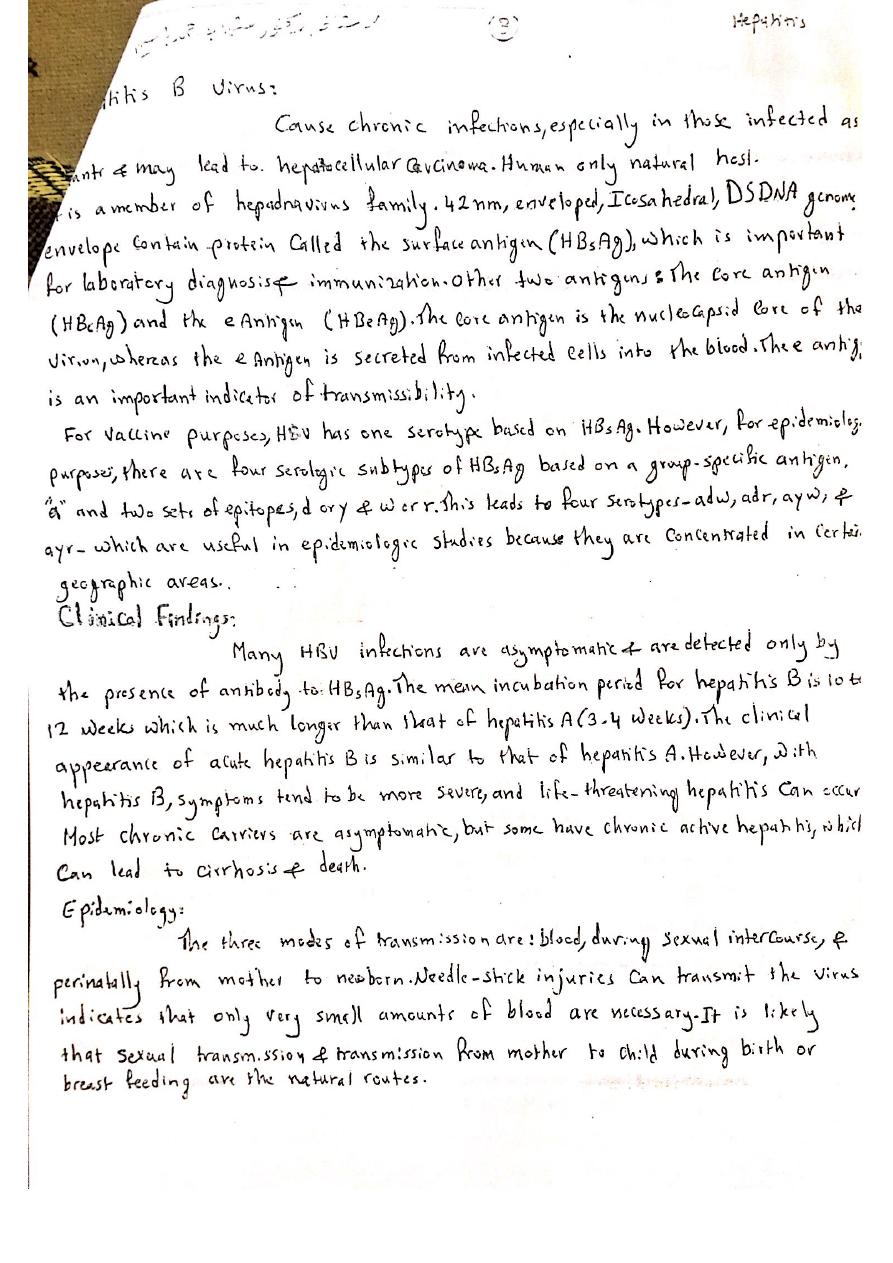 (3)
Hepatitis
titis B Virus:
Cause chronic infections, especially in those infected as
ants & may lead to. hepatocellular Carcinoma. Human only natural host.
t is a member of hepadnavirus family. 42 nm, enveloped, Icosahedral, DSDNA genome
envelope Contain protein Called the surface antigen (HBsAg), which is important
for laboratory diagnosis & immunization. Other two antigens: The Core antigen
(HBcAg) and the e Antigen (HBeAg). The Core antigen is the nucleocapsid Core of the
Virion, whereas the e Antigen is secreted from infected cells into the blood. The e antig
is an important indicator of transmissibility.
For Vaccine purposes, HBV has one serotype based on HBsAg. However, for epidemiolog
purposes, there are four serologic subtypes of HBsAg based on a group-specific antigen,
"a" and two sets of epitopes, d or y & w or r. This leads to four serotypes - adw, adr, ayw, &
ayr - which are useful in epidemiologic studies because they are Concentrated in Certai
geographic areas..
Clinical Findings:
Many HBV infections are asymptomatic & are detected only by
the presence of antibody to HBsAg. The mean incubation period for hepatitis B is 10 to
12 weeks which is much longer than that of hepatitis A (3-4 weeks). The clinical
appearance of acute hepatitis B is similar to that of hepatitis A. However, with
hepatitis B, symptoms tend to be more severe, and life-threatening hepatitis Can occur
Most chronic Carriers are asymptomatic, but some have chronic active hepatitis, which
Can lead to cirrhosis & death.
Epidemiology:
The three modes of transmission are: blood, during sexual intercourse, &
perinatally from mother to newborn. Needle-stick injuries Can transmit the virus
indicates that only very small amounts of blood are necessary. It is likely
that sexual transmission & transmission from mother to child during birth or
breast feeding are the natural routes.